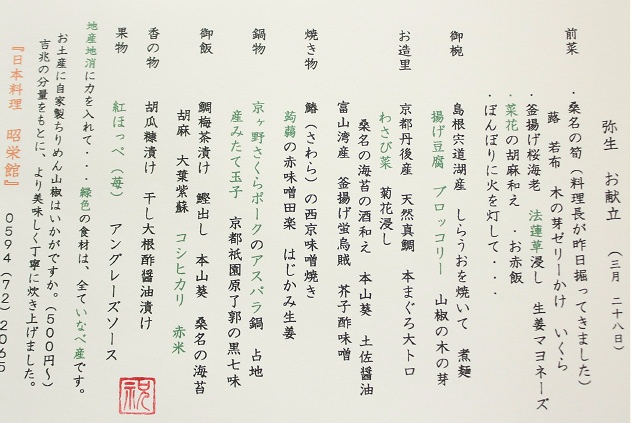 弥生　お献立　（三月　二十八日）
前菜　・桑名の筍（料理長が昨日掘ってきました）
蕗　若布　木の芽ゼリーかけ　いくら
・釜揚げ桜海老　法蓮草浸し　生姜マヨネーズ
・菜花の胡麻和え　・お赤飯
・ぼんぼりに火を灯して・・・
御椀　島根宍道湖産　しらうおを焼いて　煮麺
揚げ豆腐　ブロッコリー　山椒の木の芽
お造里　京都丹後産　天然真鯛　本まぐろ大トロ
わさび菜　菊花浸し
桑名の海苔の酒和え　本山葵　土佐醤油
富山湾産　釜揚げ蛍烏賊　芥子酢味噌
焼き物　鰆（さわら）の西京味噌焼き
蒟蒻の赤味噌田楽　はじかみ生姜
鍋物　京ヶ野さくらポークのアスパラ鍋　占地
産みたて玉子　京都祇園原了郭の黒七味
御飯　鯛梅茶漬け　鰹出し　本山葵　桑名の海苔
胡麻　大葉紫蘇　コシヒカリ　赤米
香の物　胡瓜糠漬け　干し大根酢醤油漬け
果物　紅ほっぺ（苺）　アングレーズソース
地産地消に力を入れて・・・緑色の食材は、全ていなべ産です。
お土産に自家製ちりめん山椒はいかがですか。（５００円〜）
吉兆の分量をもとに、より美味しく丁寧に炊き上げました。
『日本料理　昭栄館』　０５９４（７２）２０６５
祝